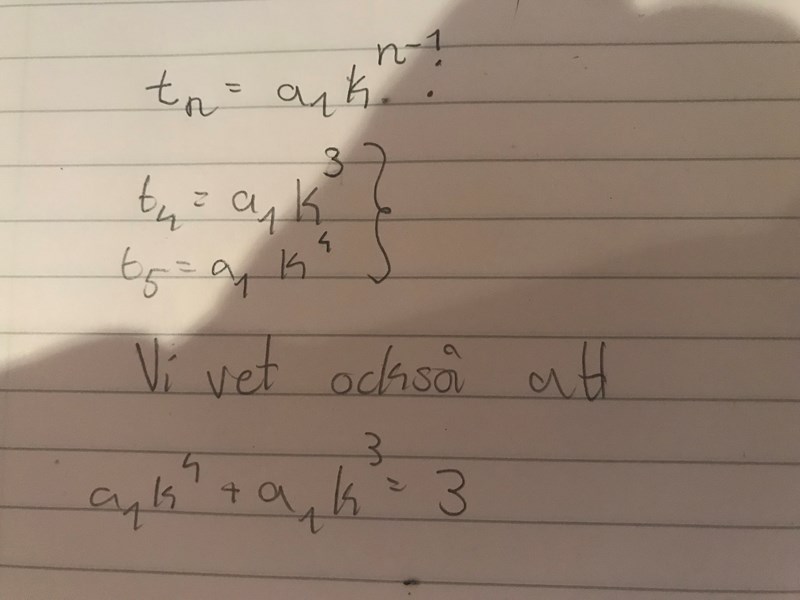 tₙ = a₁kⁿ⁻¹:
t₄ = a₁k³ }
t₅ = a₁k⁴
Vi vet också att
a₁k⁴ + a₁k³ = 3